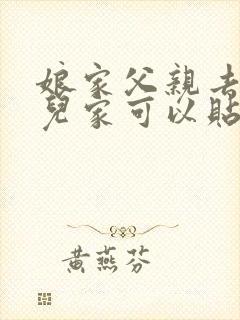 娘家父親去
兒家可以貼
黃燕芬